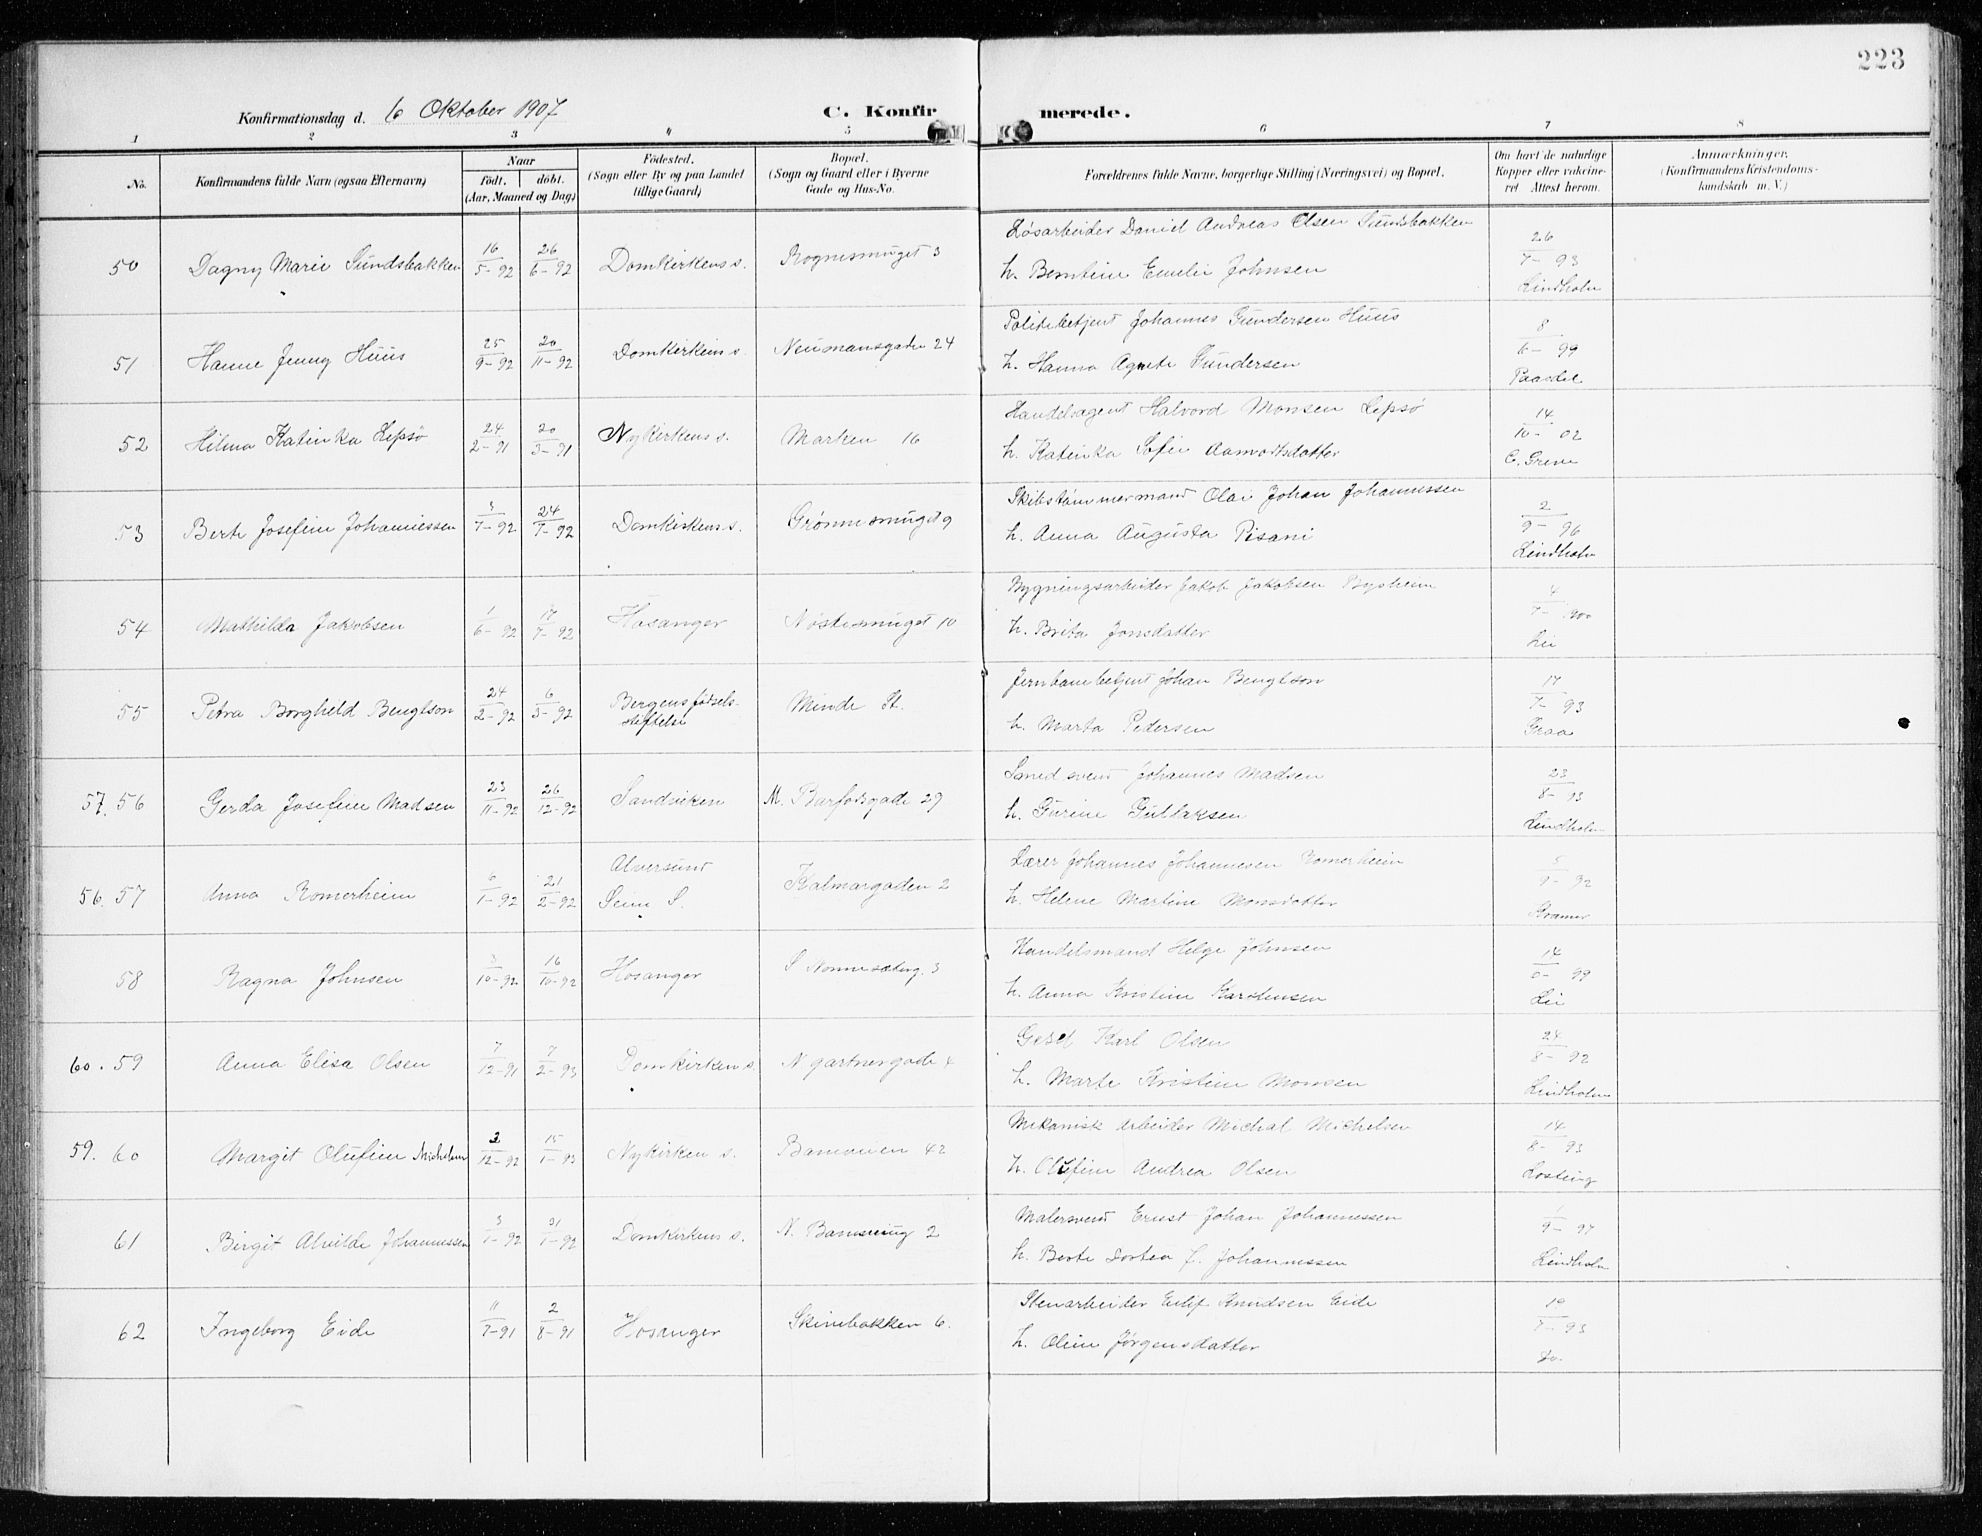 223
Konfirmationsdag d. 6 Oktober 1907 C. Konfir merede.
1 2 3 4 5 6 7 8
No. Konfirmandens fulde Navn (ogsaa Efternavn) Naar født. døbt. (Aar, Maaned og Dag) Fødested. (Sogn eller By og paa Landet tillige Gaard) Bopæl. (Sogn og Gaard eller i Byerne Gade og Hus-No. Forældrenes fulde Navne, borgerlige Stilling (Næringsvei) og Bopæl. Om havt de naturlige Kopper eller vaccineret. Attest herom. Anmærkninger. (Konfirmandens Kristendomskundskab m. V.)
50 Dagny Marie Sundsbakken 16/5-92 26/6-92 Domkirkens s. Rognesmuget 3 Løsarbeider Daniel Andreas Olsen Sundsbakken
h. Berntine Emelie Johnsen 26/7-93 Lindholm
51 Hanne Jenny Huus 25/9-92 20/11-92 Domkirkens s. Neumansgaden 24 Politibetjent Johannes Gundersen Huus
h. Hanna Agnete Gundersen 8/6-99
52 Hilma Katinka Lepsø 24/2-91 20/3-91 Nykirkens s. Marken 16 Handelsagent Halvord Monsen Lepsø
h. Katinka Sofie Aamodtsdatter 14/10-02 C. Greve
53 Berte Josefine Johannessen 3/7-92 24/7-92 Domkirkens s. Grønnesmuget 9 Skibstømmermand Olai Johan Johannessen
h. Anna Augusta Pisani 2/9-96 Lindholm
54 Mathilda Jakobsen 1/6-92 17/7-92 Hosanger Nøstesmuget 10 Bygningsarbeider Jakob Jakobsen Bysheim
h. Brita Jonsdatter 4/7-900 Lie
55 Petra Borghild Bengtson 24/2-92 6/3-92 Bergens fødselsstiftelse Minde St. Jernbanebetjent Johan Bengtson
h. Marta Pedersen 17/7-93 Graa
57. 56 Gerda Josefine Madsen 23/11-92 26/12-92 Sandviken M. Barfodsgade 29 Smedsvend Johannes Madsen
h. Gurine Gullaksen 23/8-93 Lindholm
56. 57 Anna Romerheim 6/1-92 21/2-92 Alversund Seim S. Kalmargaden 2 Lærer Johannes Johannesen Romerheim
h. Helene Martine Monsdatter 5/9-92 Kramer
58 Ragna Johnsen 3/10-92 16/10-92 Hosanger S Nonnesæterg. 3 Handelsmand Helge Johnsen
h. Anna Kristine Karstensen 14/6-99 Lie
60. 59 Anna Elisa Olsen 7/12-91 7/2-93 Domkirkens s. N gartnergade 4 Gesel Karl Olsen
h. Marte Kristine Monsen 24/8-92 Lindholm
59. 60 Margit Olufine Michelsen 2/12-92 15/1-93 Nykirken s. 42 Mekanisk arbeider Michal Michelsen
h. Olufine Andrea Olsen 14/8-93 Losting
61 Birgit Alvilde Johannessen 3/1-92 31/1-92 Domkirkens s. 2 Malersvend Ernst Johan Johannessen
h. Berte Dortea f. Johannessen 1/9-97 Lindholm
62 Ingeborg Eide 11/7-91 2/8-91 Hosanger Skinnebakken 6. Stenarbeider Eilif Knudsen Eide
h. Oline Jørgensdatter 19/7-93 Do.